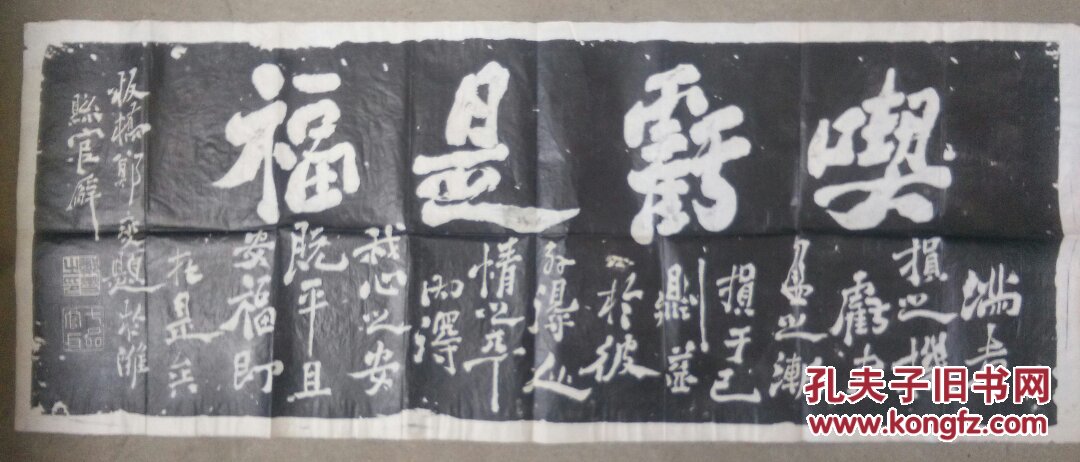 喫虧是福
满者
損之機
虧者
盈之漸
損于已
則盈
於彼
外得人
情之平
内得
我心之安
既平且
安福即
在是矣
板橋鄭燮題於濰
縣官廨
孔夫子旧书网
www.kongfz.com